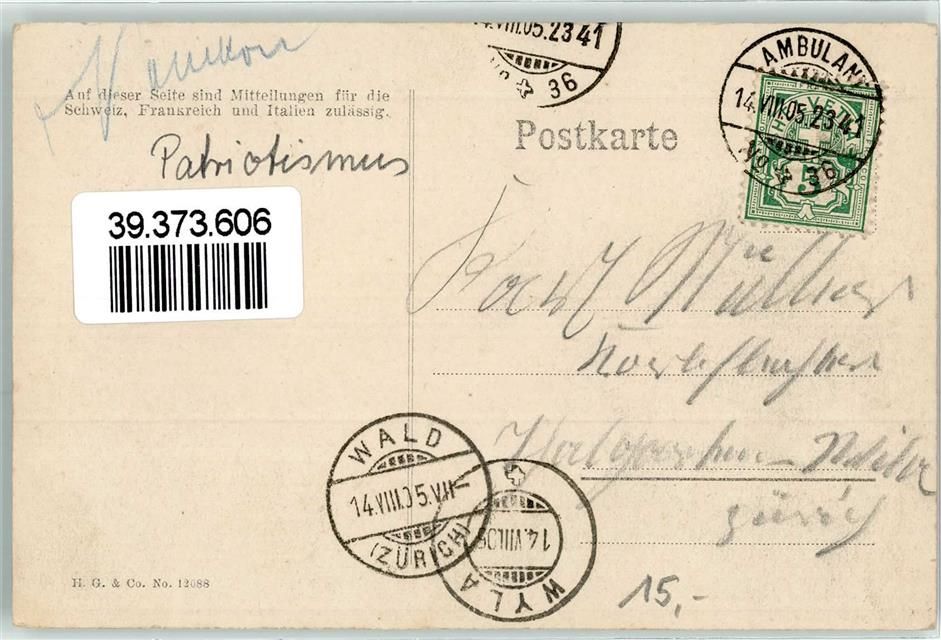 14.VIII.05.2341
No 36
AMBULANT
14.VIII.05.2341
No 36
HELVETIA
5
Auf dieser Seite sind Mitteilungen für die
Schweiz, Frankreich und Italien zulässig.
Postkarte
Patriotismus
39.373.606
Karl Müller
Zürich
WALD
14.VIII.05.VII
(ZÜRICH)
14.VIII.05
WYLA
H. G. & Co. No. 12088
15,-